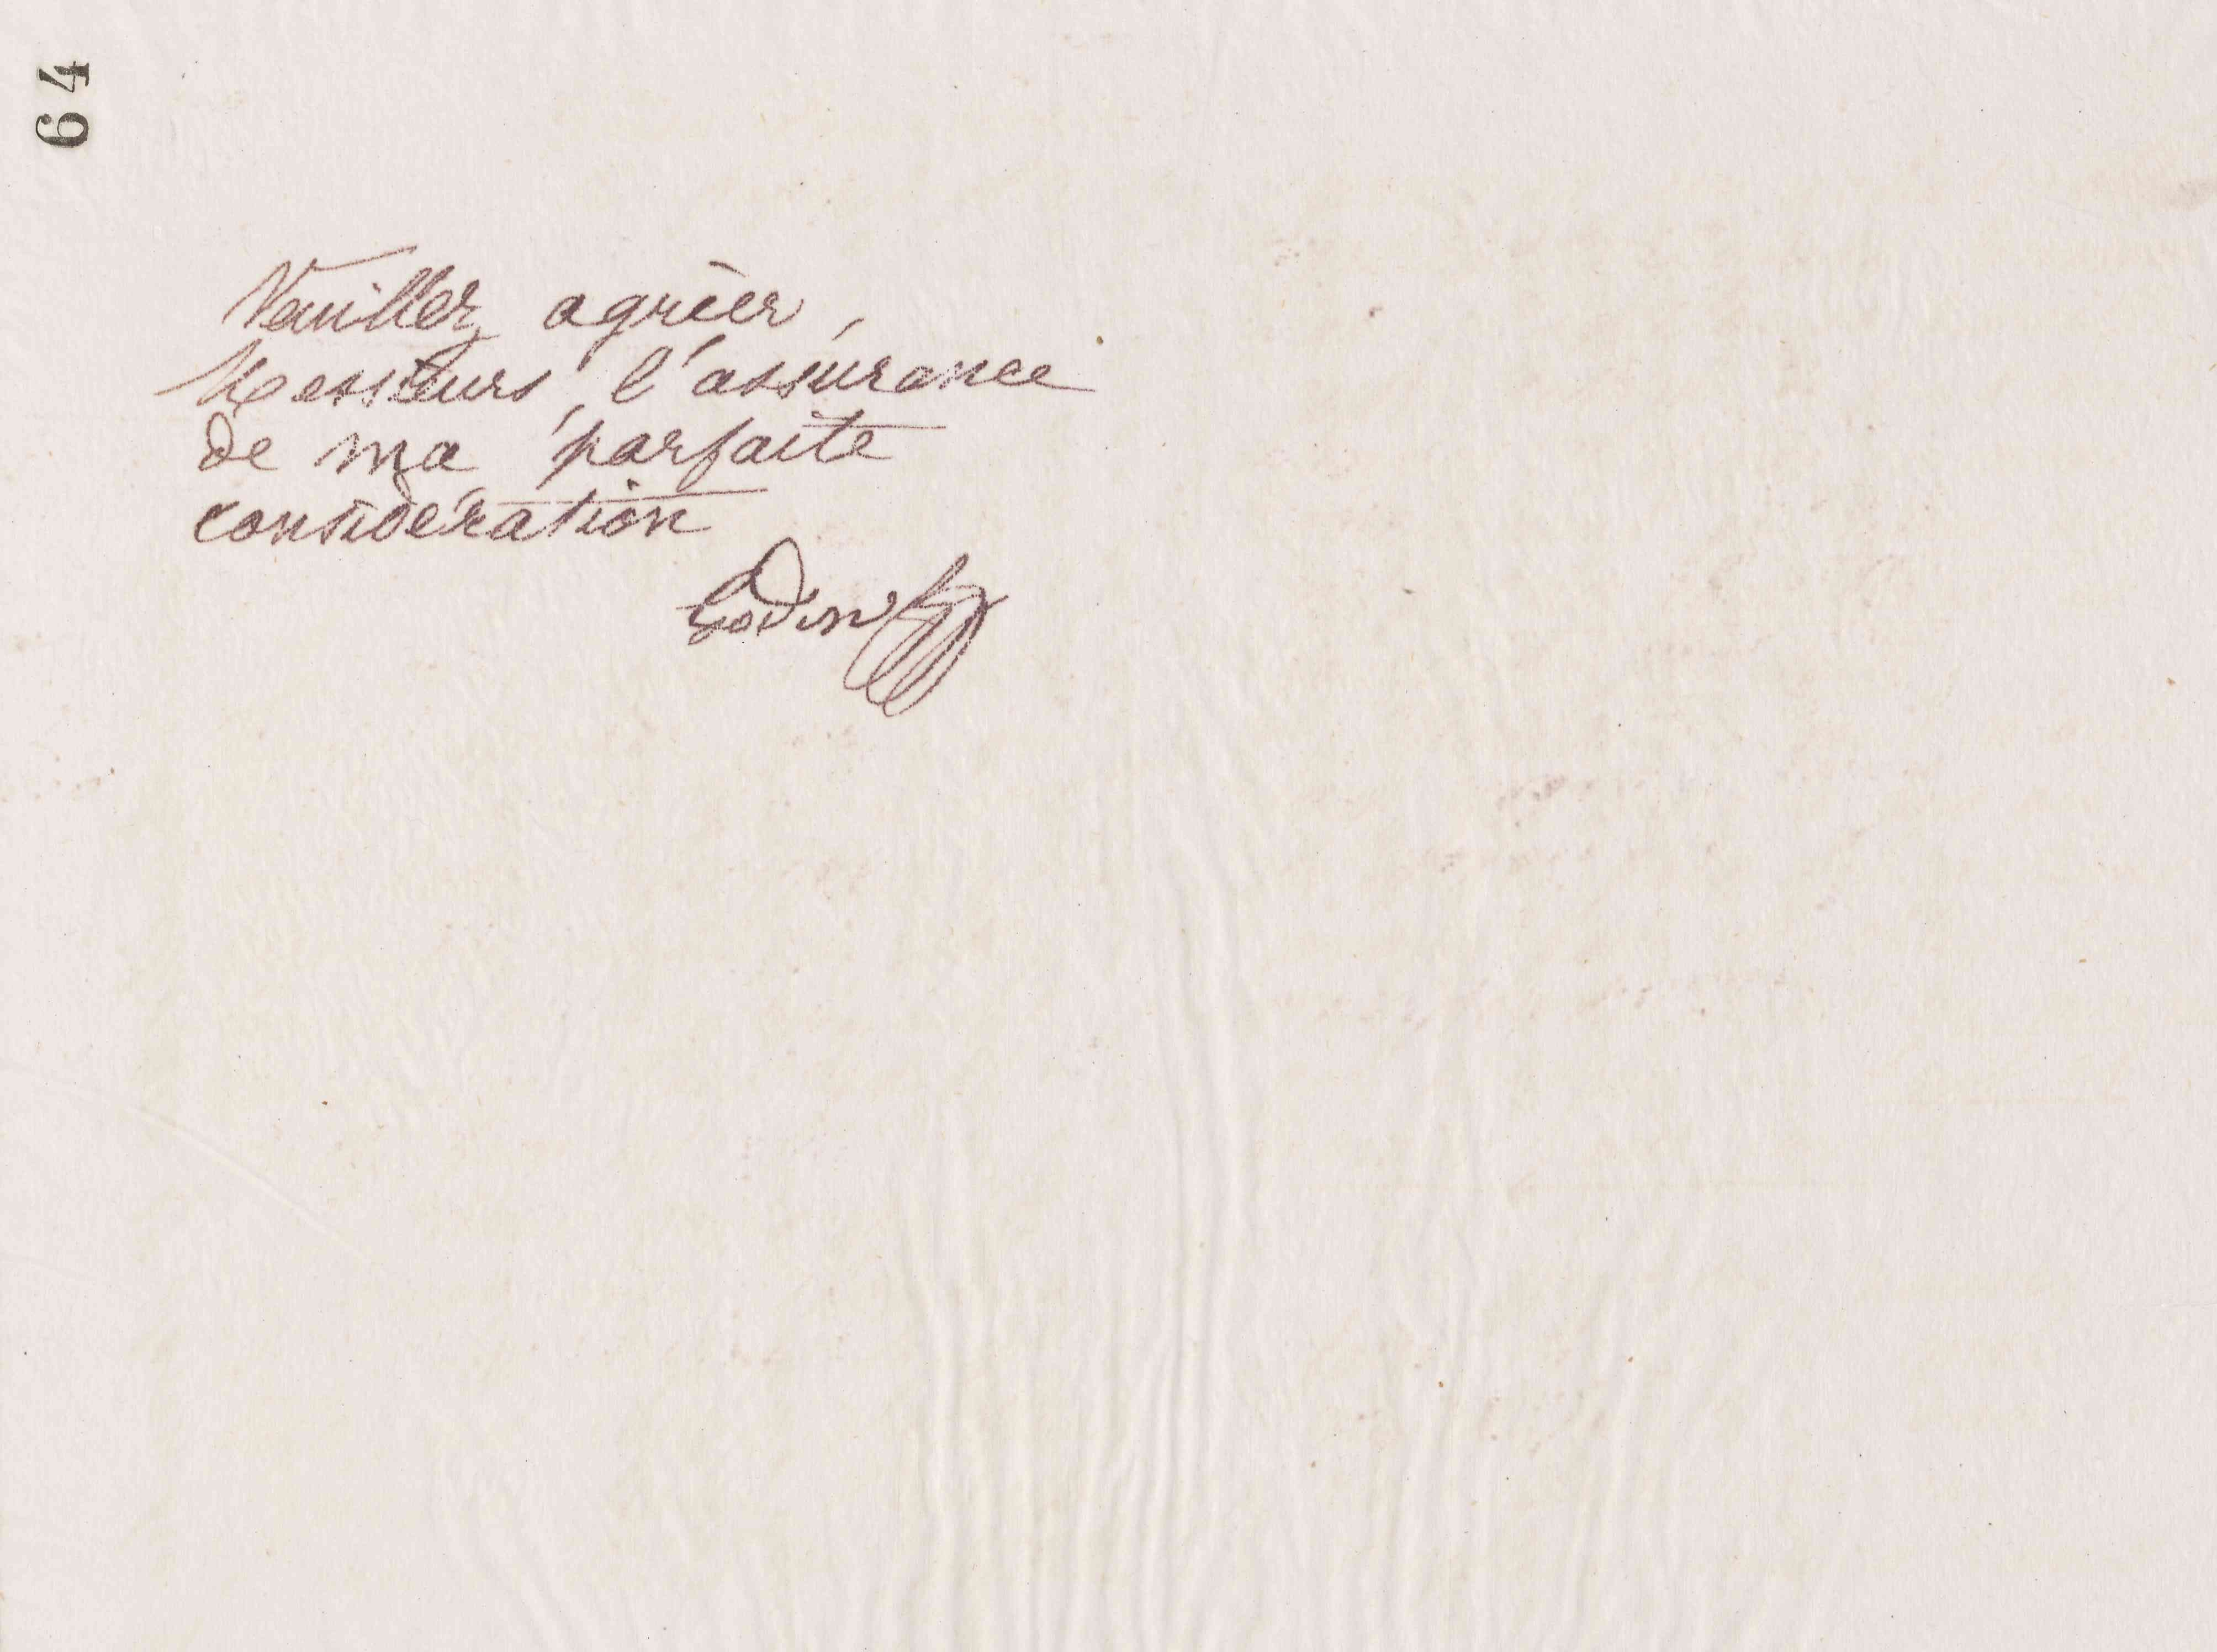 64
Veuillez agréer,
Messieurs, l'assurance
de ma parfaite
considération
Godin